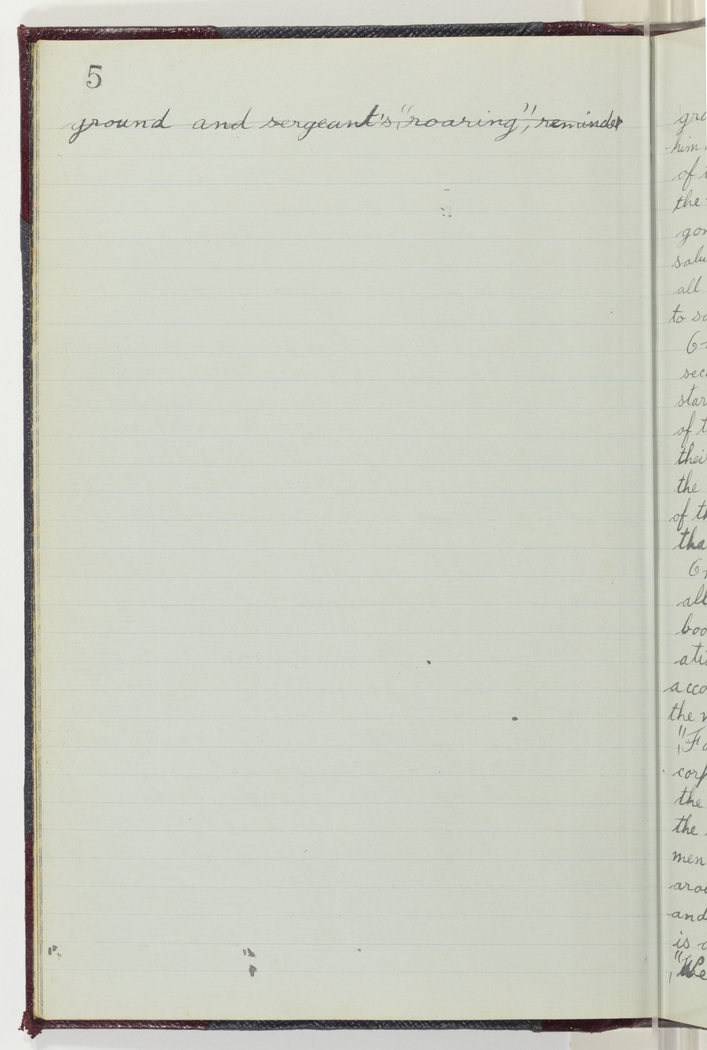 5
ground and sergeant's "roaring", reminder
gro
him
of i
the
gon
salu
all
to sa
sec
star
of t
thei
the
of th
tha
all
boo
ati
acco
the
"Fo
corp
the
the
men
arou
and
is
"We